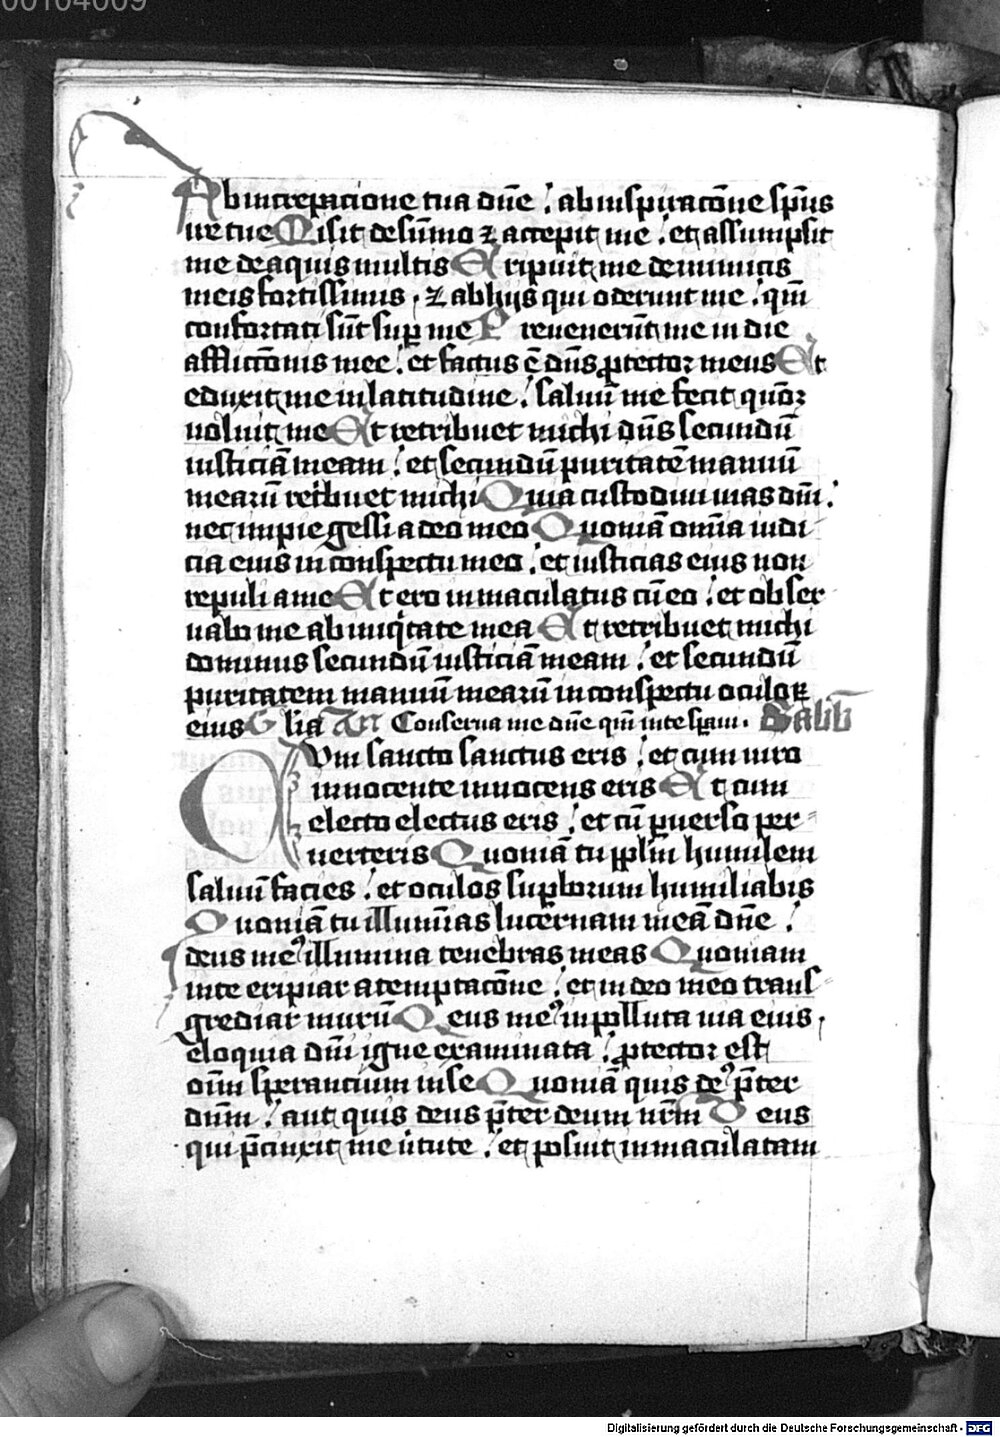 00104009
Ab increpacione tua dn̄e : ab inspiracōne sp̄us
ire tue Misit de sūmo ⁊ accepit me : et assumpsit
me de aquis multis Eripuit me de inimicis
meis fortissimis . ⁊ ab hijs qui oderunt me : qm̄
confortati sūt sup̱ me Preuenerūt me in die
afflictōnis mee : et factus ē dn̄s ꝓtector meus Et
eduxit me in latitudine : saluū me fecit quōꝛ
uoluit me Et retribuet michi dn̄s secundū
iusticiā meam : et secundū puritatē manuū
mearū retͥbuet michi Quia custodiui uias dm̄i :
nec impie gessi a deo meo Quoniā om̄ia iudi
cia eius in conspectu meo : et iusticias eius non
repuli a me Et ero inmaculatus cū eo : et obser
uabo me ab iniqͥtate mea Et retribuet michi
dominus secundū iusticiā meam : et secundū
puritatem manuū mearū in conspectu oculoꝝ
eius Glia An Conserua me dn̄e qm̄ in te sp̱am . Sabb̄
Cum sancto sanctus eris : et cum uiro
innocente innocens eris Et cum
electo electus eris : et cū ꝑuerso per
uerteris Quoniā tu pp̄lm̄ humilem
saluū facies : et oculos sup̱borum humiliabis
Quoniā tu illumīas lucernam meā dn̄e :
deus meꝰ illumina tenebras meas Quoniam
in te eripiar a temptacōne : et in deo meo trans
grediar murū Deus meꝰ inpolluta uia eius .
eloquia dm̄i igne examinata : ꝓtector est
oīm sperantium in se Quoniā quis deꝰ p̄ter
dn̄m : aut quis deus p̄ter deum nr̄m Deus
qui p̄cinxit me ūtute : et posuit inmaculatam
Digitalisierung gefördert durch die Deutsche Forschungsgemeinschaft - DFG